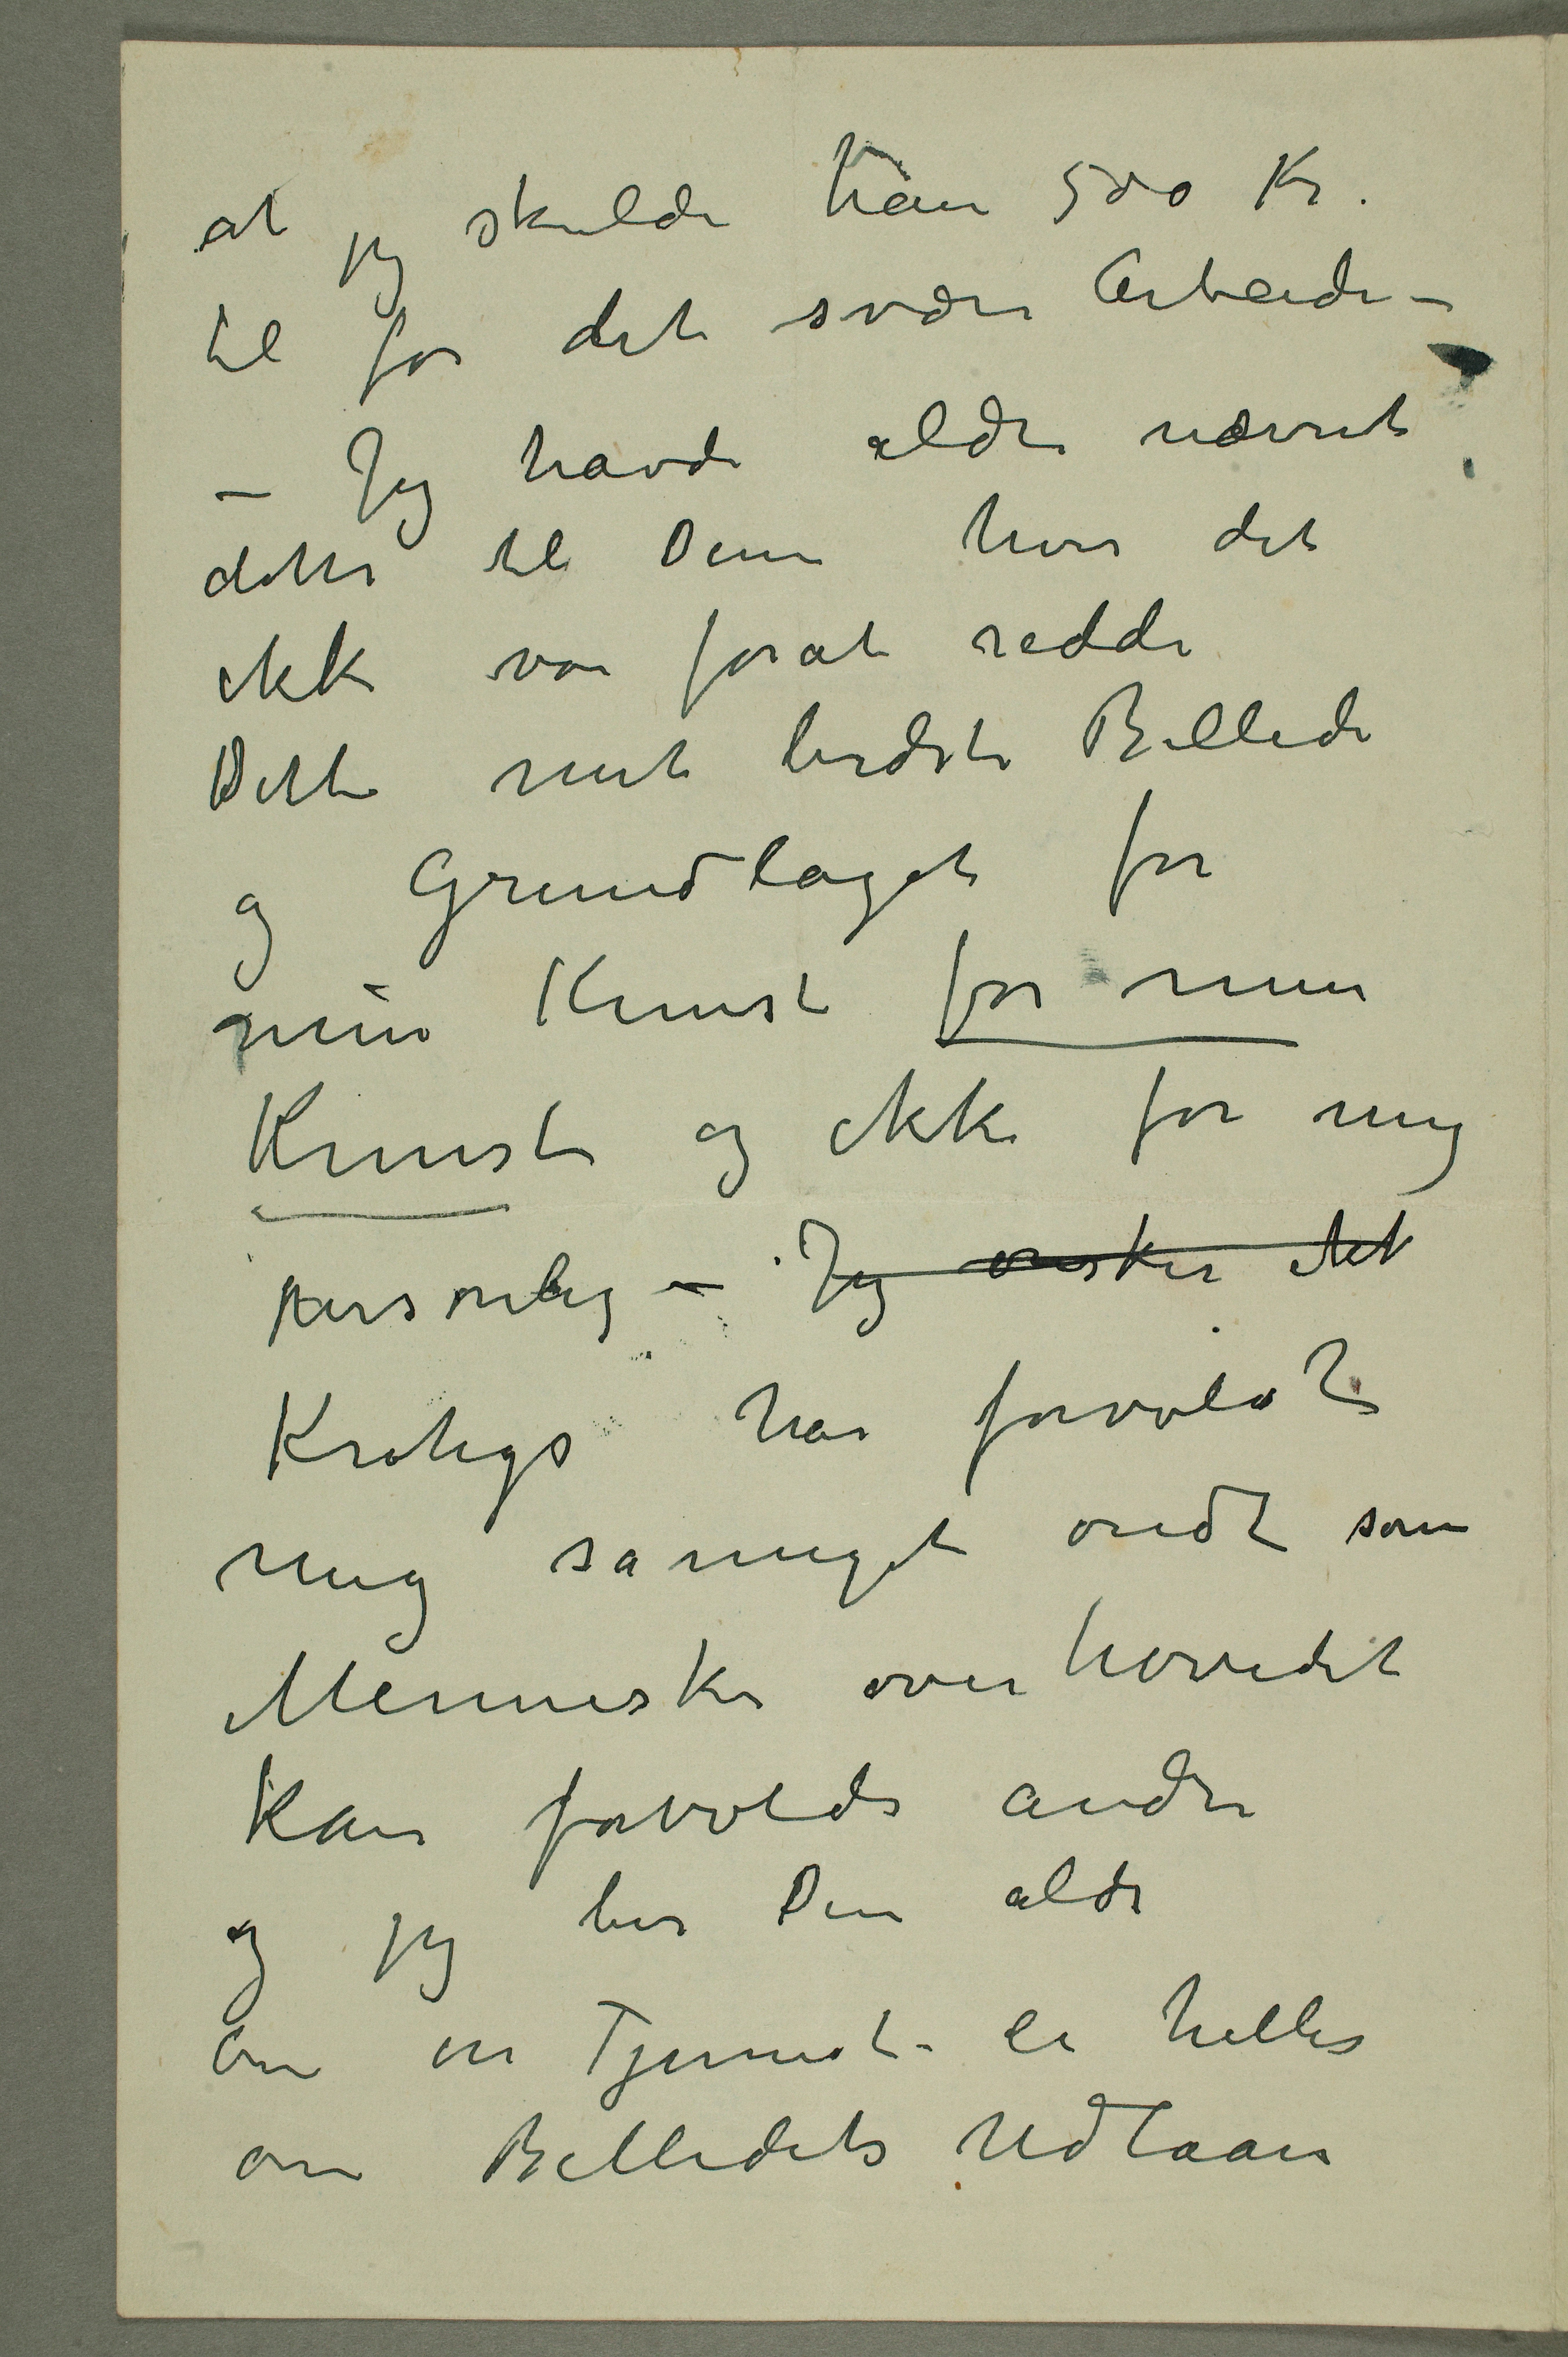 at jeg skulde have 500 Kr.
til for det svære Arbeide –
– Jeg havde aldri nævnt
dette til Dem hvis det
ikke var forat redde
Dette mit bedste Billede
og Grundlaget for
min Kunst for min
Kunst og ikke for mig
personlig – Jeg ønsker ikke
Krohgs har forvoldt
mig så meget ondt som
Mennesker overhovedet
kan forvolde andre
og jeg ber Dem aldri
om en Tjeneste – ei heller
om Billedets Udlaan